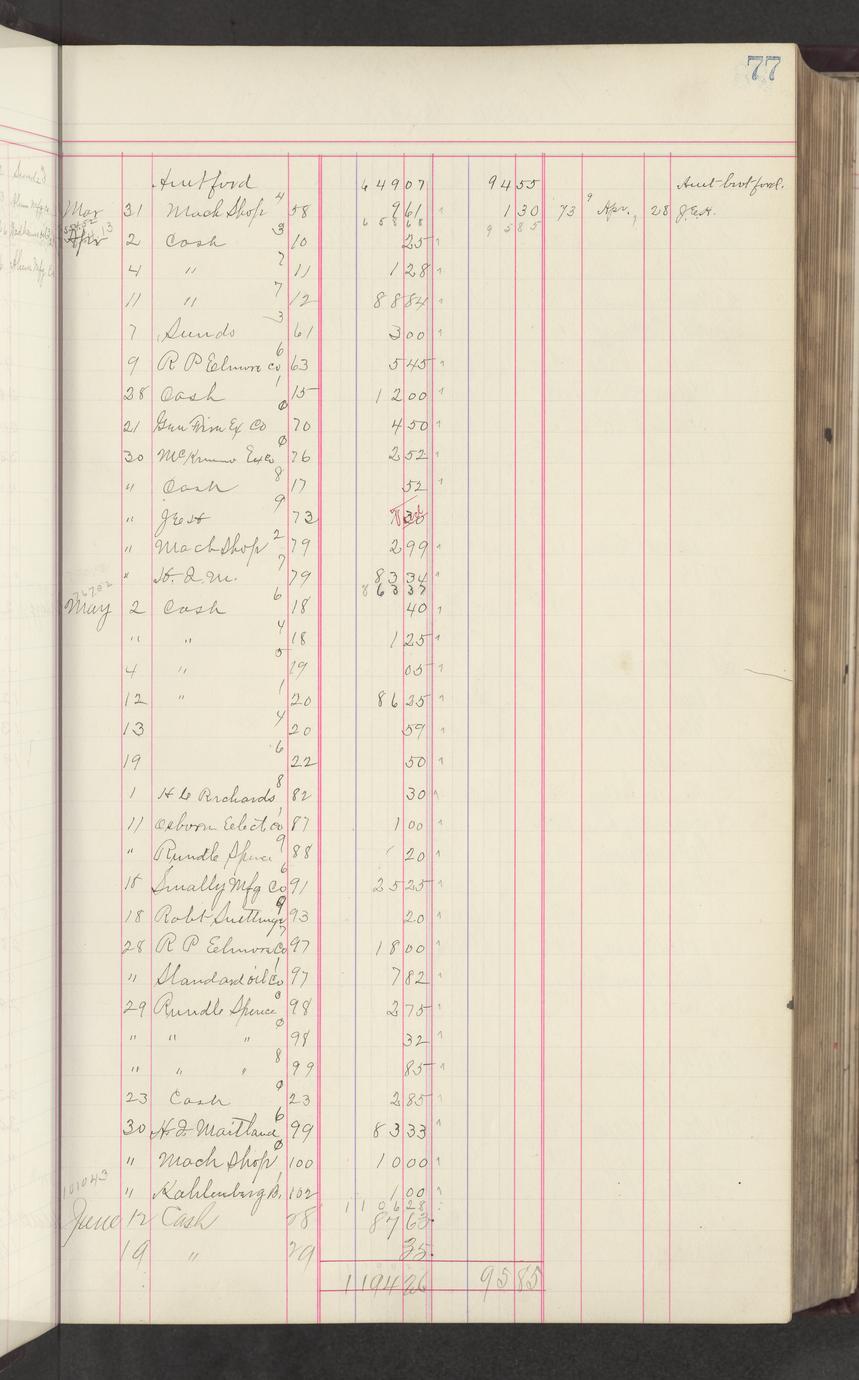 77
Amt ford 649 07 94 55 Amt brot ford.
Mar 31 Mach Shop 4 58 9 61 1 30 73 9 Apr. 28 J.E.H.
658 68 95 85
Apr 2 Cash 3 10 25
4 " 7 11 1 28
11 " 7 12 88 84
7 Sunds 3 61 3 00
9 R P Elmore Co 6 63 5 45
28 Cash 1 15 12 00
21 0 70 4 50
30 0 76 2 52
" Cash 8 17 52
" J E H 9 73
" Mach Shop 2 79 2 99
" H. F. M. 7 79 83 34
863 37
May 2 Cash 6 18 40
" " 4 18 1 25
4 " 5 19 05
12 " 1 20 86 25
13 4 20 59
19 6 22 50
1 H C Richards 8 82 30
11 Osborn Elect Co 1 87 1 00
" Rundle Spence 9 88 20
18 Smally Mfg Co 6 91 25 25
18 Robt 9 93 20
28 R P Elmore Co 7 97 18 00
" Standard oil Co 1 97 7 82
29 Rundle Spence 8 98 2 75
" " " 0 98 32
" " " 8 99 85
23 Cash 0 23 2 85
30 H. F. Maitland 6 99 83 33
" Mach Shop 0 100 10 00
1010 43
" Kahlenberg B. 1 102 1 00
1106 28
June 12 Cash 28 87 63
19 " 29 35
1194 26 95 85